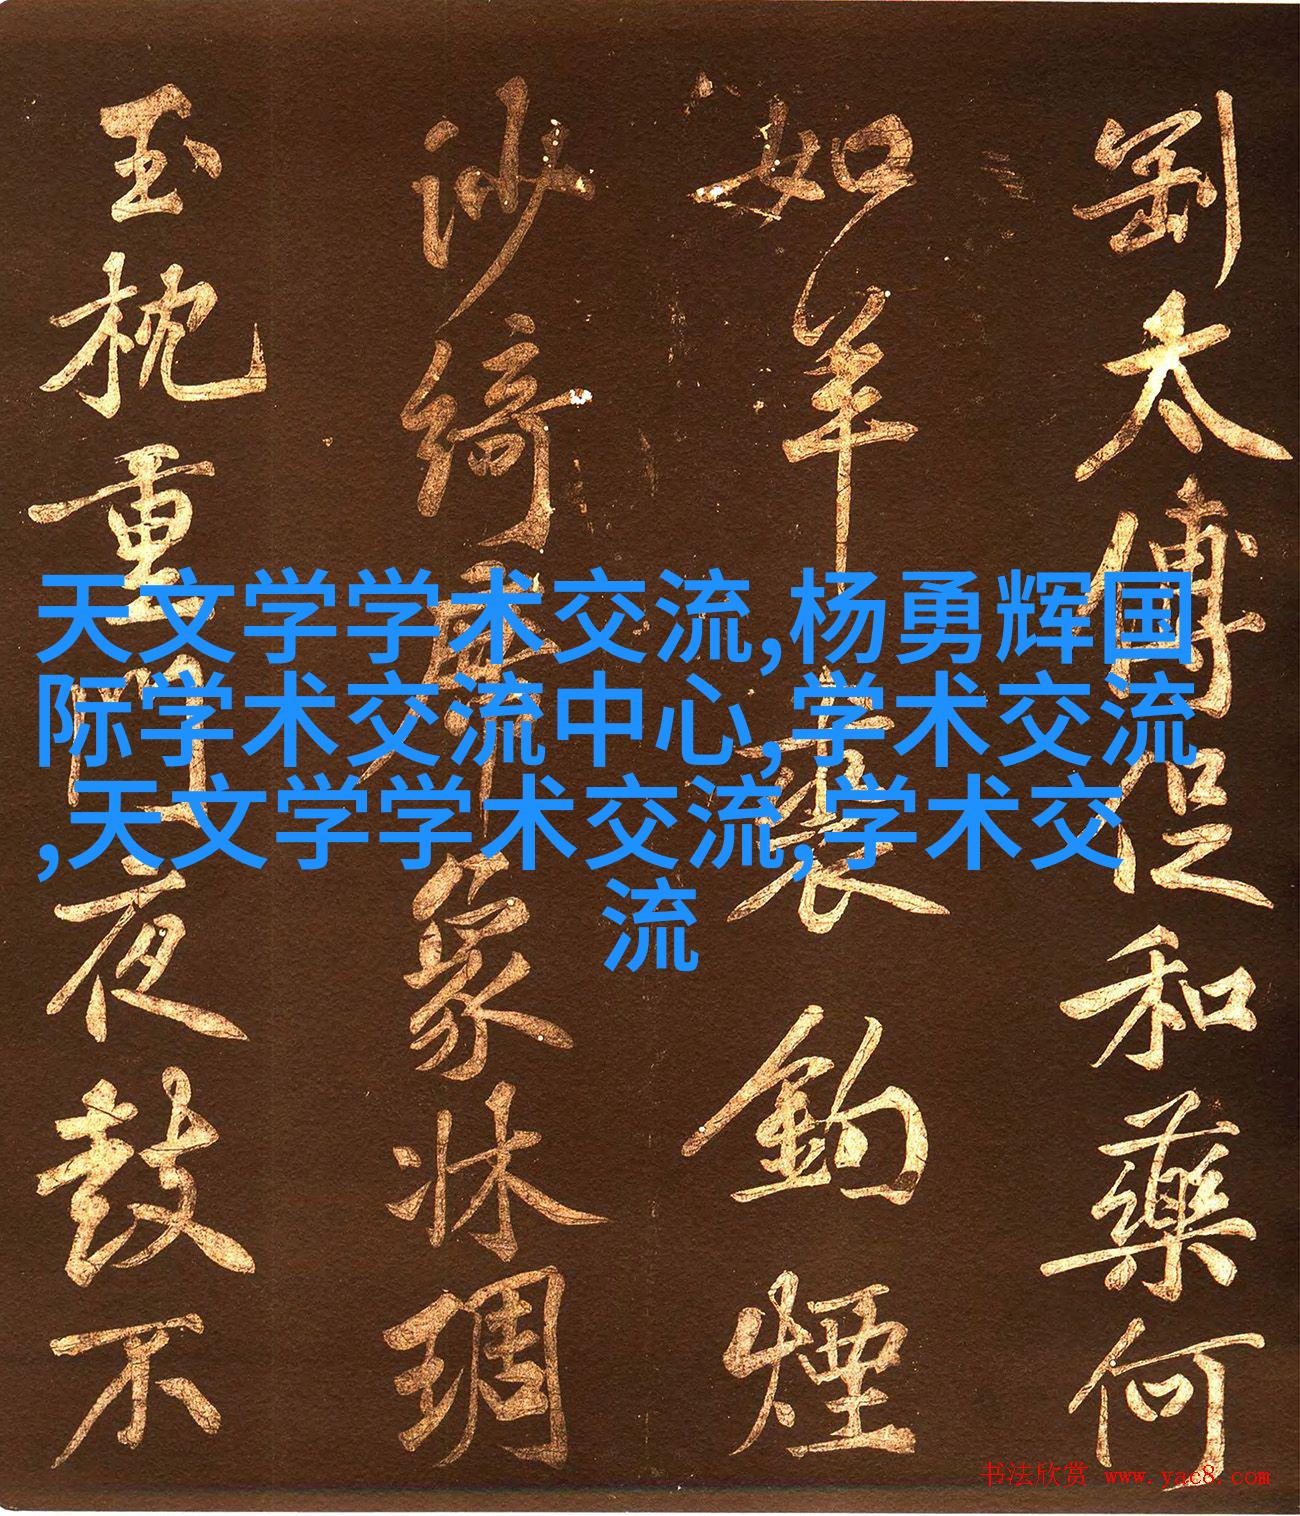 天文学学术交流,杨勇辉国
际学术交流中心,学术交流
,天文学学术交流,学术交
流
太傅促和藥何
如羊裘釣煙
沙綺席象牀琱
玉枕重門夜鼓不
书法欣赏 www.yac8.com